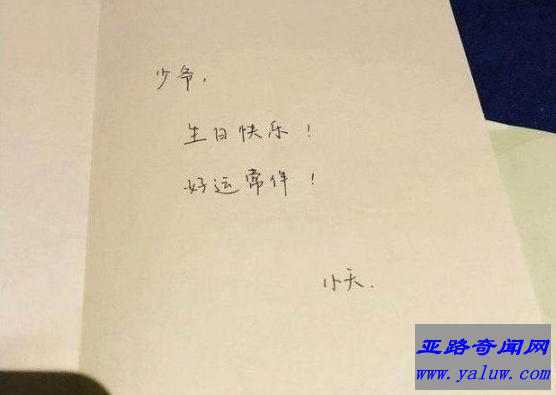 少爷，
生日快乐！
好运常伴！
小天.
亚路奇闻网
www.yaluw.com